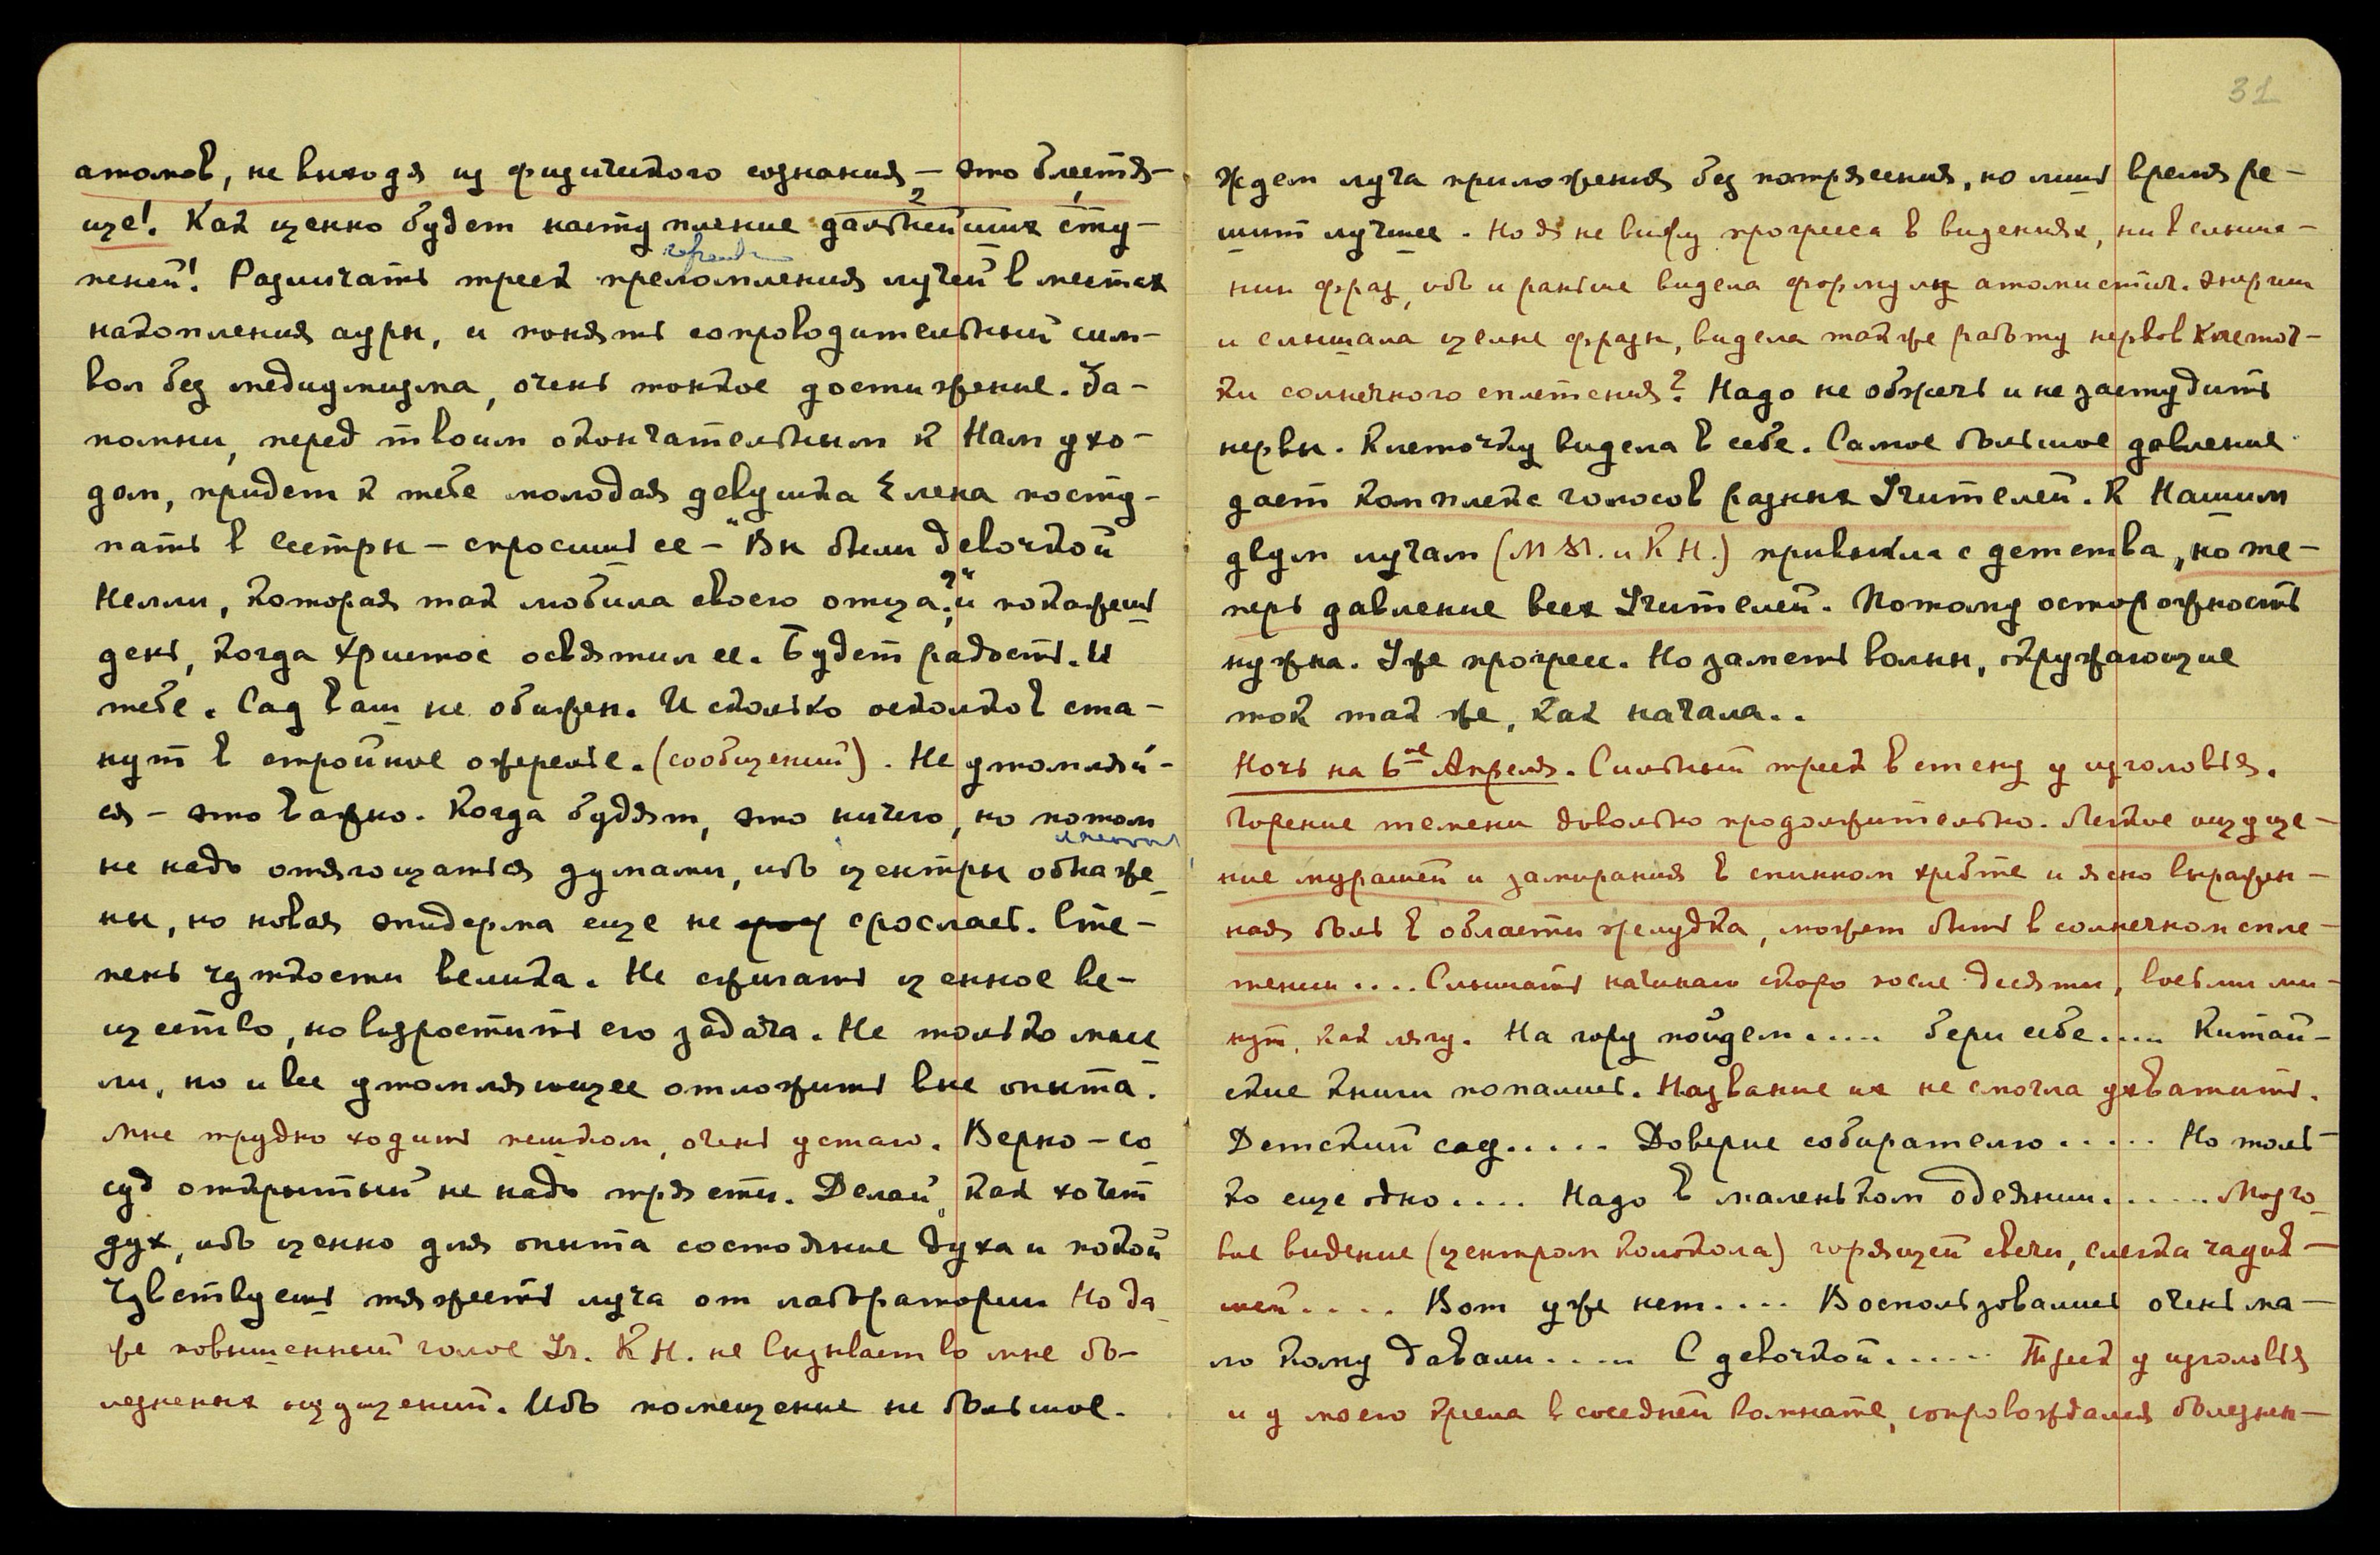 атомов, не выходя из физического сознания — это блестя-
ще! Как ценно будет наступление дальнейших сту-
2 1
пеней! Различать треск преломления лучей в местах
накопления ауры, и понять сопроводительный сим-
вол без медиумизма, очень тонкое достижение. За-
помни, перед твоим окончательным к Нам ухо-
дом, придет к тебе молодая девушка Елена посту-
пать в Сестры — спросишь ее — "Вы были девочкой
Нелли, которая так любила своего отца?" и покажешь
день, когда Христос освятил ее. Будет радость. И
тебе. Сад ваш не обижен. И сколько осколков ста-
нут в стройное ожерелье. (сообщений). Не утомляй-
ся — это важно. Когда будят, это ничего, но потом
не надо отягощаться думами, ибо центры обнаже-
ны, но новая эпидерма еще не срослась. Сте-
пень чуткости велика. Не сжигать ценное ве-
щество, но взростить его задача. Не только мыс-
ли, но и все утомляющее отложить вне опыта.
Мне трудно ходить пешком, очень устаю. Верно — со-
суд открытый не надо трясти. Делай, как хочет
дух, ибо ценно для опыта состояние духа и покой
Чувствуешь тяжесть луча от лаборатории Но да-
же повышенный голос Уч. К Н. не вызывает во мне бо-
лезненных ощущений. Ибо помещение не большое.
31
Ждем луча приложения без потрясения, но лишь время ре-
шит лучшее. Но я не вижу прогресса в видениях, ни в слыша-
нии фраз, ибо и раньше видела формулу атомистич. энергии
и слышала целые фразы, видела также работу нервов клеточ-
ки солнечного сплетения? Надо не обжечь и не застудить
нервы. Клеточку видела в себе. Самое большое давление
дает комплекс голосов разных Учителей. К Нашим
двум лучам (М М. и К Н.) привыкла с детства, но те-
перь давление всех Учителей. Потому осторожность
нужна. Уже прогресс. Но заметь волны, окружающие
ток так же, как начала..
Ночь на 6ое Апреля. Сильный треск в стену у изголовья.
Горение темени довольно продолжительно. Легкое ощуще-
ние мурашей и замирания в спинном хребте и ясно выражен-
ная боль в области желудка, может быть в солнечном спле-
тении.... Слышать начинаю скоро после десяти, восьми ми-
нут, как лягу. На гору пойдем..... бери себе.... Китай-
ские книги попались. Название их не смогла ухватить.
Детский сад..... Доверие собирателю..... Но толь-
ко еще одно.... Надо в маленьком одеянии...... Мозго-
вое видение (центром колокола) горящей свечи, слегка чадив-
шей.... Вот уже нет.... Воспользовались очень ма-
ло кому давали..... С девочкой...... Треск у изголовья
и у моего кресла в соседней комнате, сопровождался болезнен-